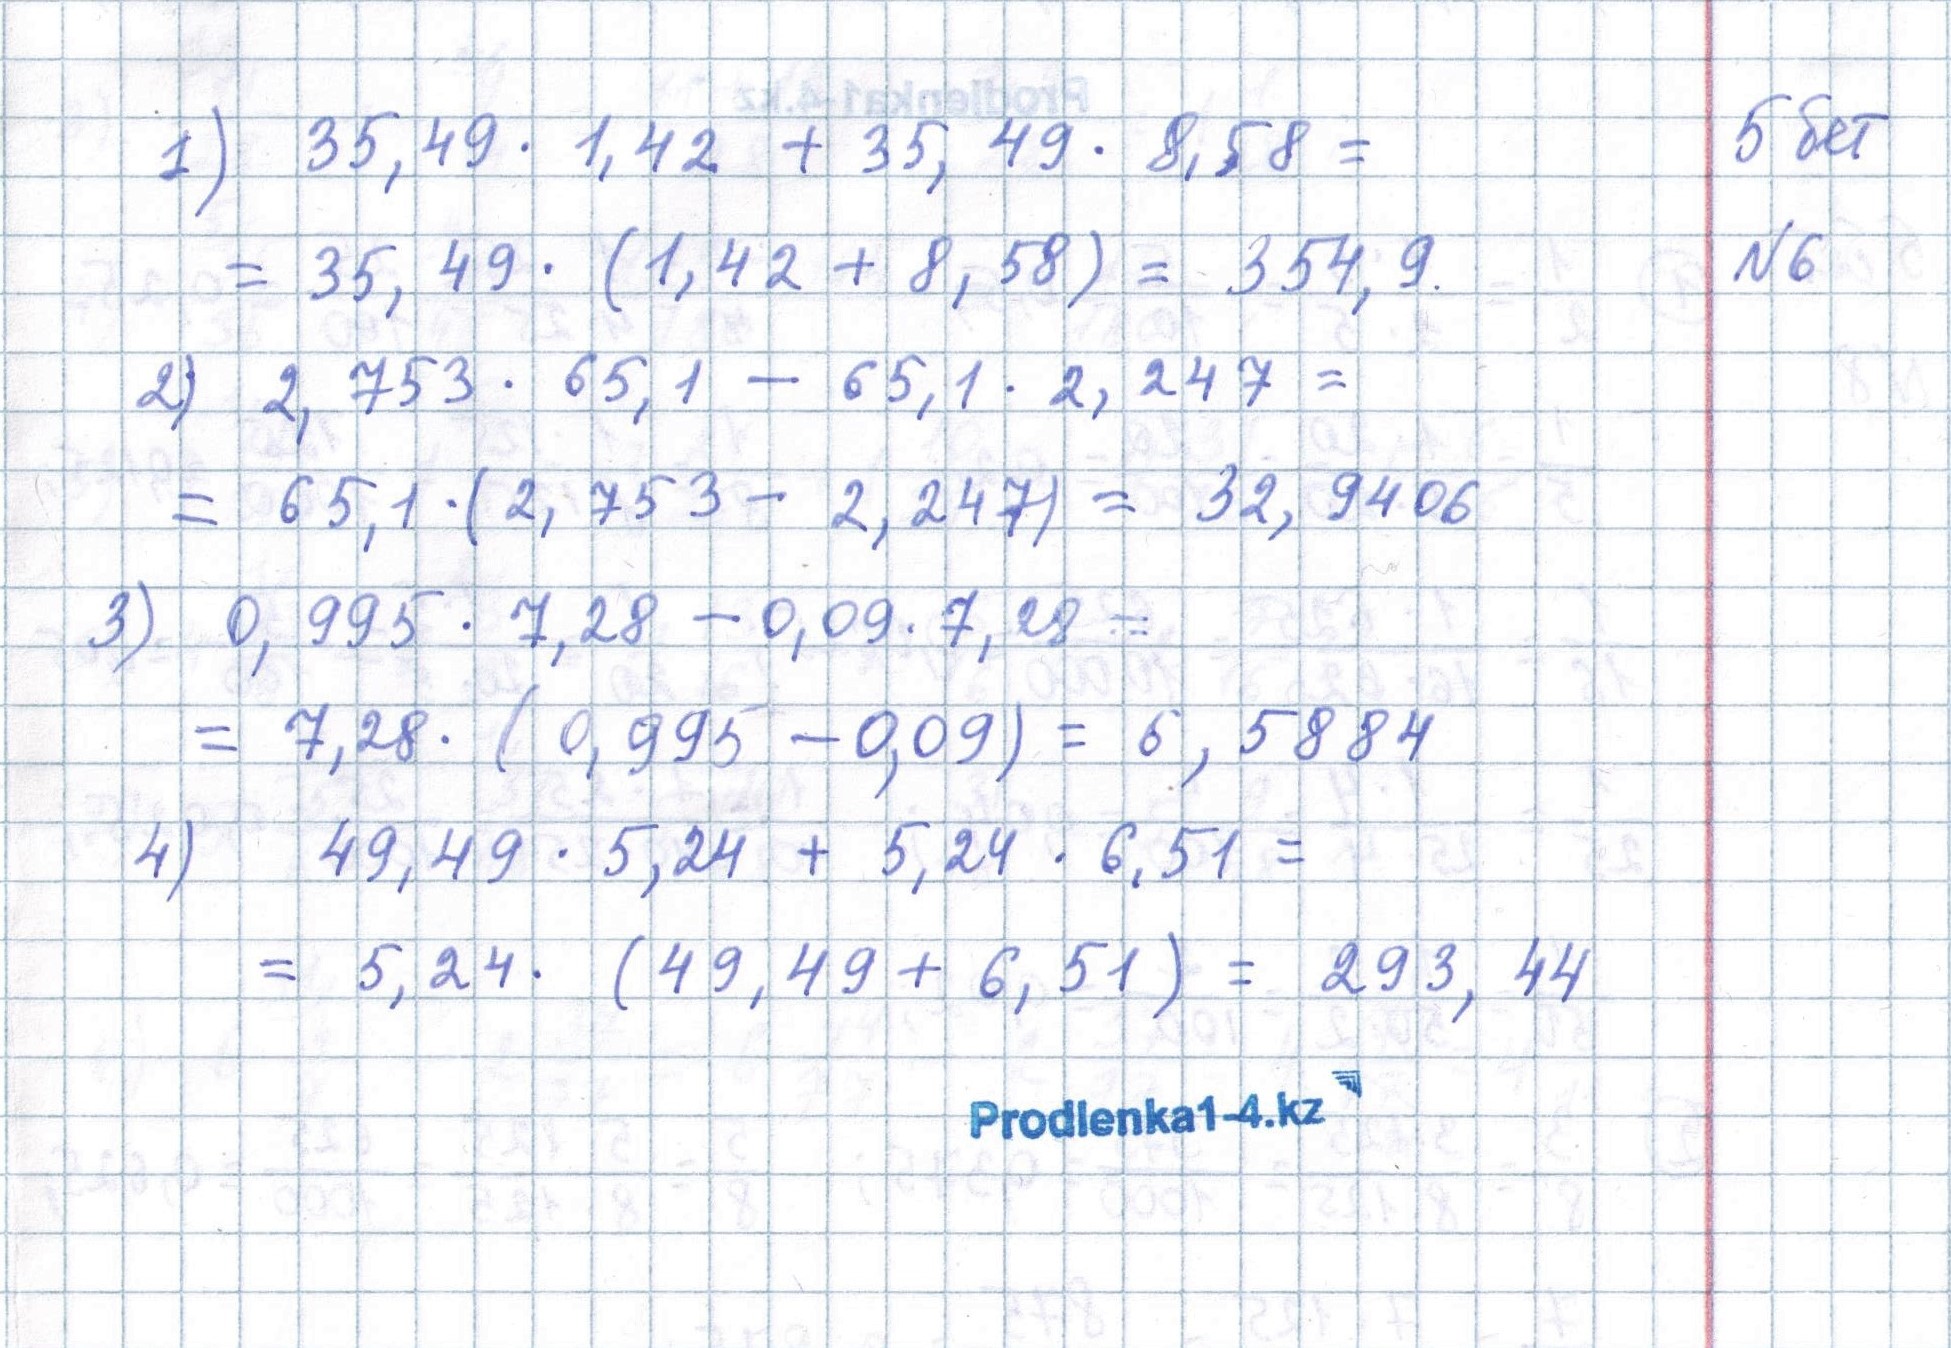 1) 35,49 · 1,42 + 35,49 · 8,58 =
5 бет
= 35,49 · (1,42 + 8,58) = 354,9.
№6
2) 2,753 · 65,1 − 65,1 · 2,247 =
= 65,1 · (2,753 − 2,247) = 32,9406
3) 0,995 · 7,28 − 0,09 · 7,28 =
= 7,28 · (0,995 − 0,09) = 6,5884
4) 49,49 · 5,24 + 5,24 · 6,51 =
= 5,24 · (49,49 + 6,51) = 293,44
Prodlenka1-4.kz